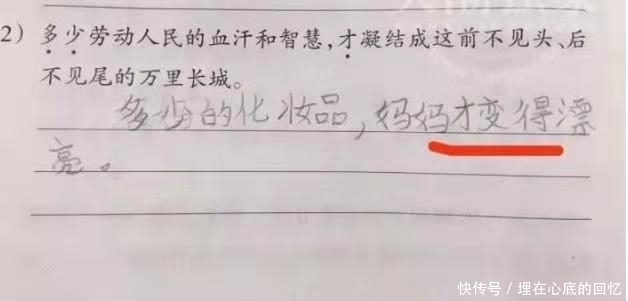 2) 多少劳动人民的血汗和智慧,才凝结成这前不见头、后
不见尾的万里长城。
多少的化妆品,妈妈才变得漂
亮。
快传号/埋在心底的回忆